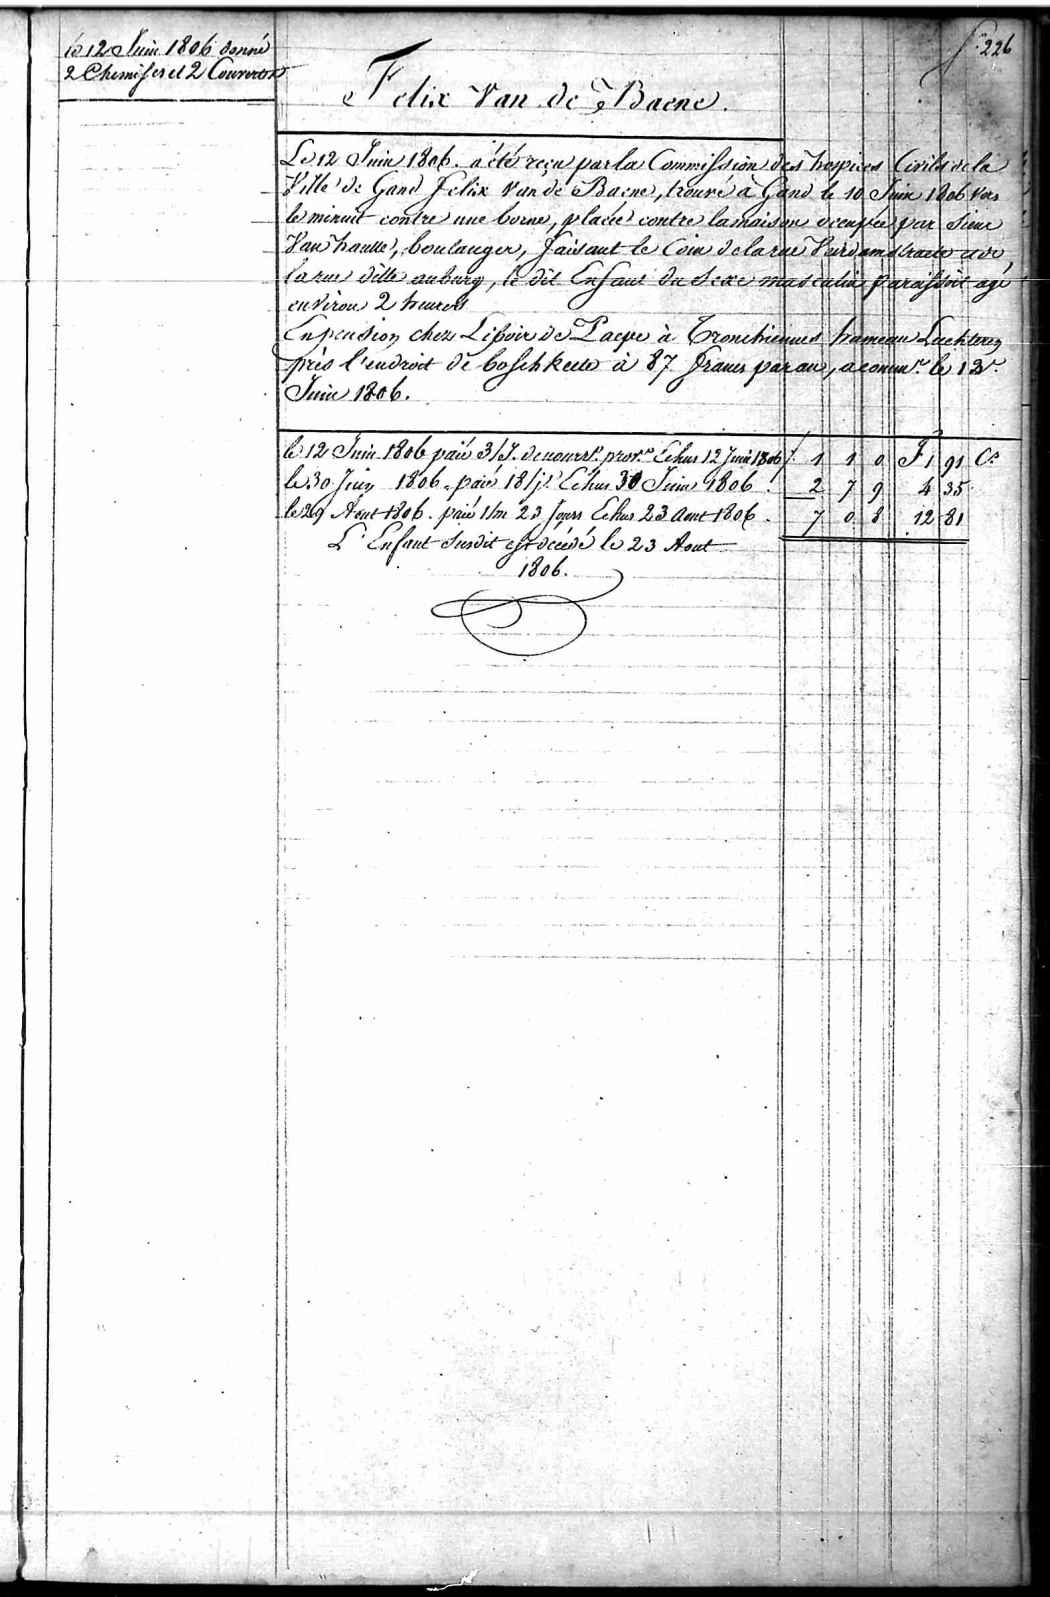 fo. 226
le 12 Juin 1806 donné
2 Chemises et 2 Couvertes
Felix Van de Baene.
Le 12 Juin 1806. a été reçu par la Commission des hospices Civils de la
Ville de Gand Felix Van de Baene, trouvé à Gand le 10 Juin 1806 vers
le minuit contre une borne, placée contre la maison occupée par Sieur
Van haute, boulanger, faisant le Coin de la rue Veirdamstraete avec
la rue dille auburg, le dit Enfant du Sexe masculin paraissoit agé
environ 2 heures
En pension chez Lipoir de Paepe à Tronchiennes hameau Luchteren
près l'endroit de boschkeete à 87 francs par an, a commee. le 13e.
Juin 1806.
le 12 Juin 1806 paié 3/J. de nourre. provre. Echus 12 Juin 1806 /. 1 1 0 F 1 91 Cs
le 30 Juin 1806. paié 18/j. Echus 30 Juin 1806. 2 7 9 4 35
le 29 Aout 1806. paié 1/m 23 Jours Echus 23 Aout 1806. 7 0 8 12 81
L'Enfant Susdit est décédé le 23 Aout
1806.